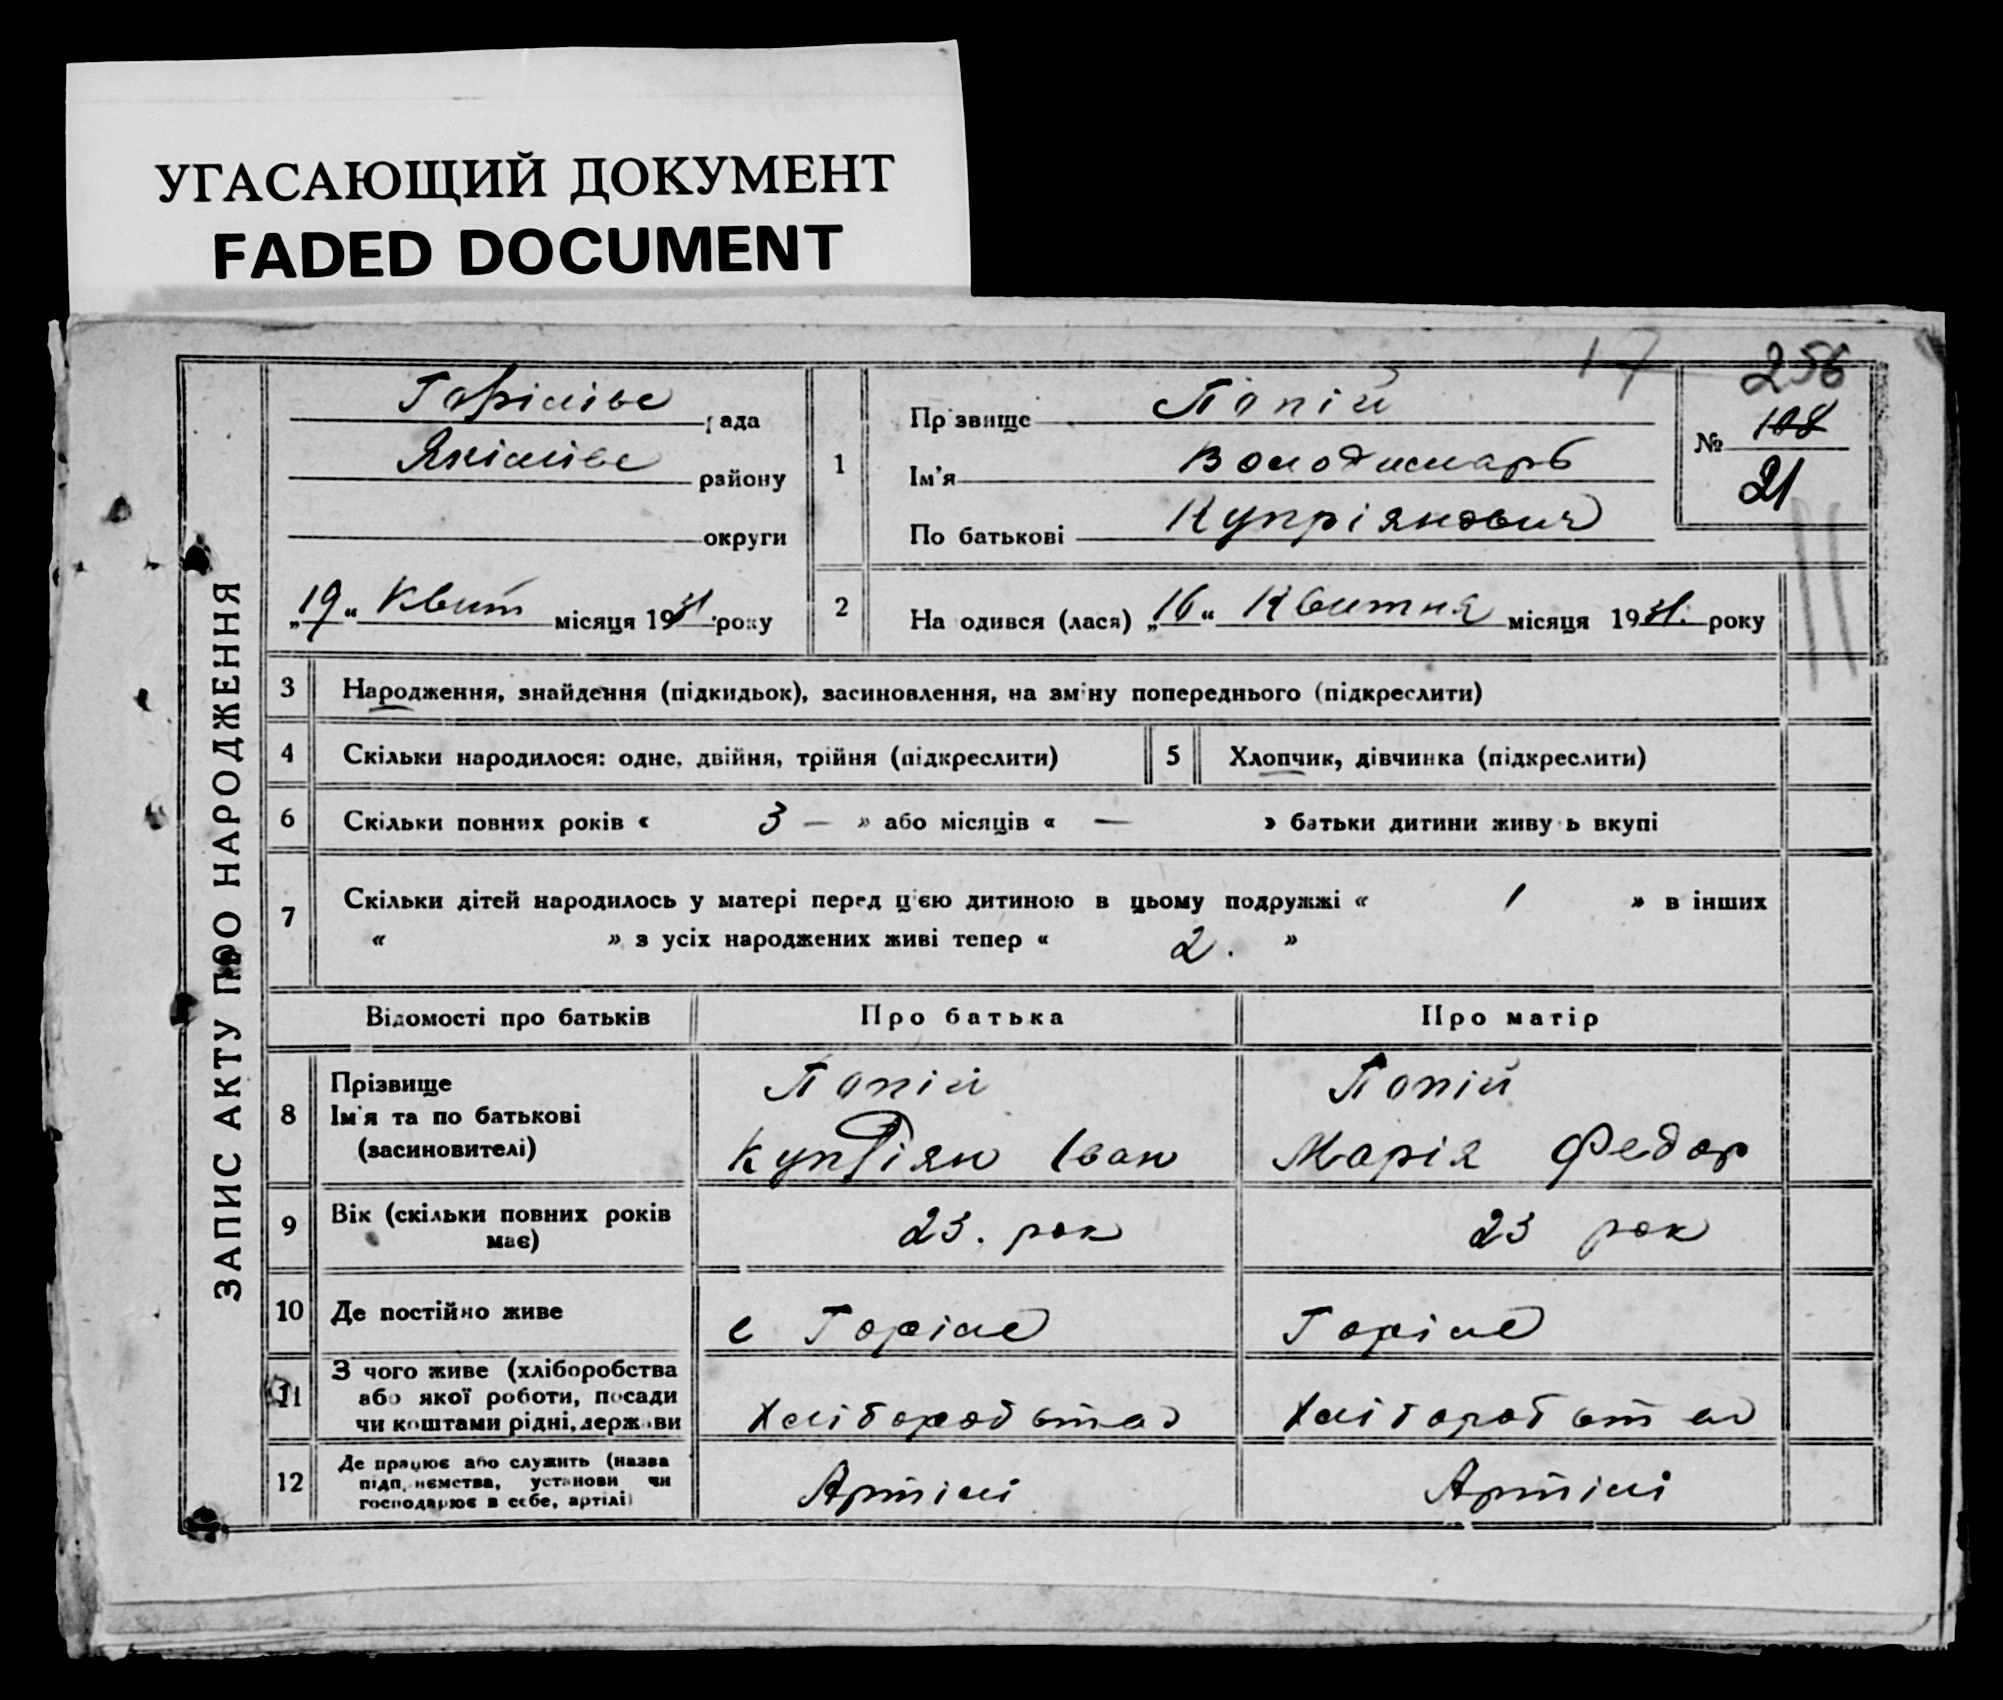 УГАСАЮЩИЙ ДОКУМЕНТ
FADED DOCUMENT
17
256
ЗАПИС АКТУ ПРО НАРОДЖЕННЯ
рада
району
округи
„19“ Квит місяця 1931 року
1
Прізвище Попій
Ім'я Володимарь
По батькові Купріянович
№ 108
21
2
На одився (лася) „16“ Квитня місяця 1931. року
3
Народження, знайдення (підкидьок), засиновлення, на зміну попереднього (підкреслити)
4
Скільки народилося: одне, двійня, трійня (підкреслити)
5
Хлопчик, дівчинка (підкреслити)
6
Скільки повних років « 3 — » або місяців « — » батьки дитини живу ь вкупі
7
Скільки дітей народилось у матері перед цією дитиною в цьому подружжі « 1 » в інших
« » з усіх народжених живі тепер « 2. »
Відомості про батьків
Про батька
Про матір
8
Прізвище
Ім'я та по батькові
(засиновителі)
Попій
Купріян Іван
Попій
Марія Федор
9
Вік (скільки повних років
має)
23. рок
23 рок
10
Де постійно живе
с
11
З чого живе (хліборобства
або якої роботи, посади
чи коштами рідні, держави
Хліборобства
Хліборобства
12
Де працює або служить (назва
підп иємства, установи чи
господарює в себе, артілі)
Артілі
Артілі